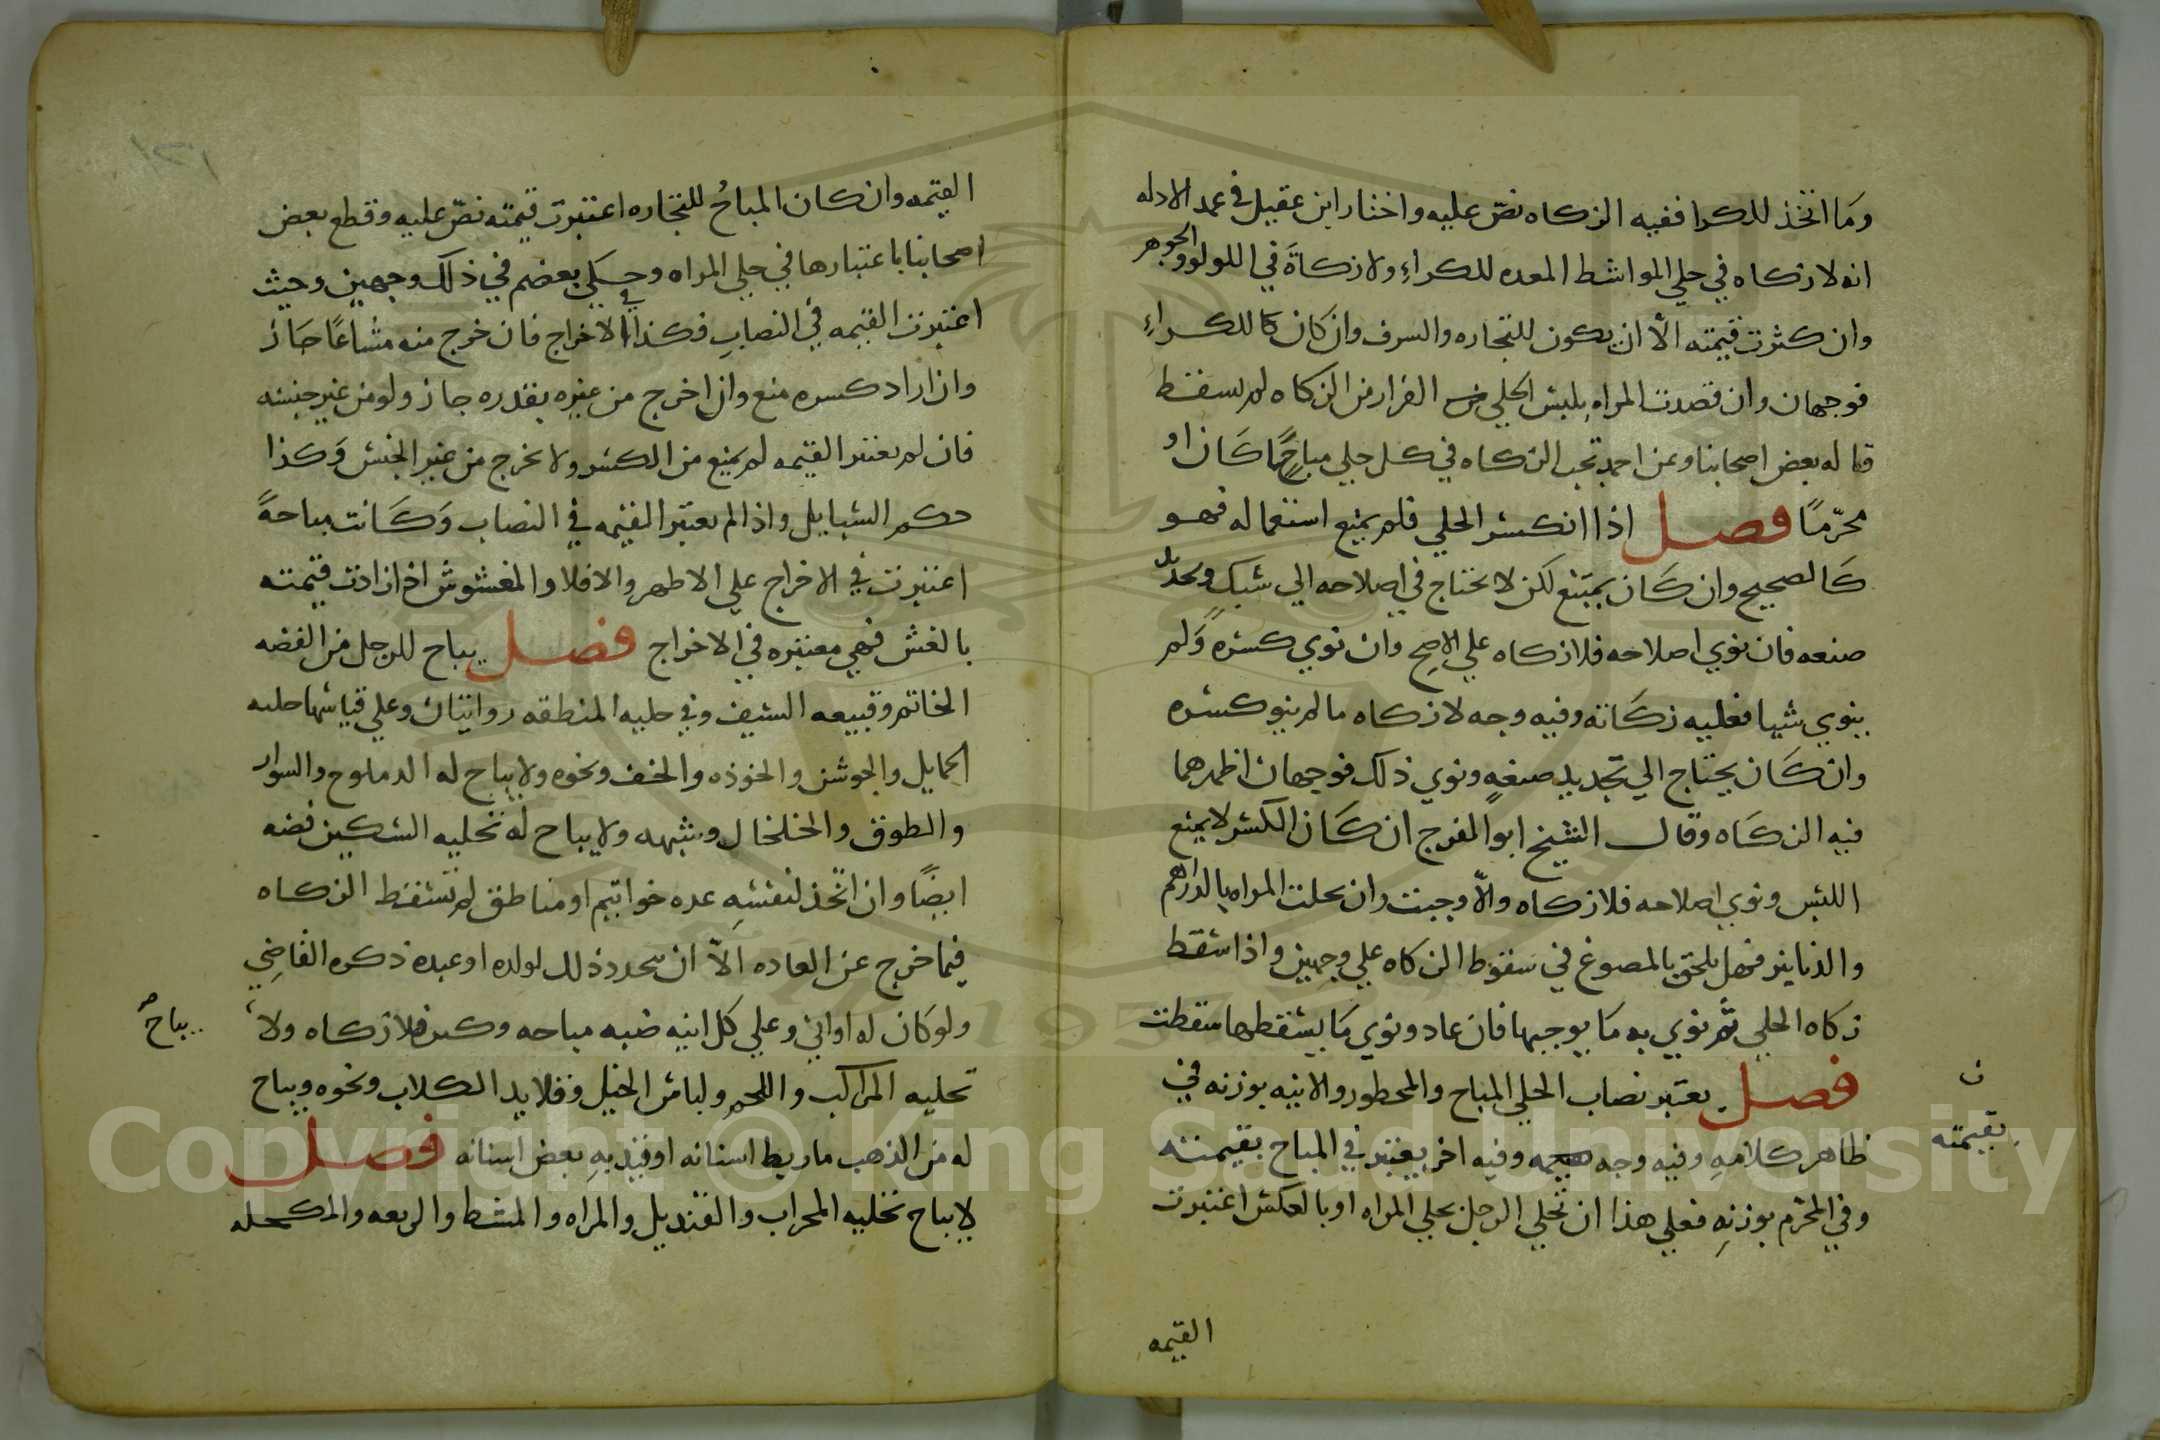 وما اتخذ للكرا ففيه الزكاه نص عليه واختار ابن عقيل في عمد الادله
انه لا زكاه في حلي المواشط المعده للكراءِ ولا زكاةَ في اللولو والجوهر
وان كثرت قيمته الا ان يكون للتجاره والسرف وان كان للكراءِ
فوجهان وان قصدت المراه بلبس الحلي الفرار من الزكاه لم يسقط
قاله بعض اصحابنا وعن احمد تجب الزكاه في كل حلي مباحًا كان او
محرّمًا فصل اذا انكسر الحلي فلم يمنع استعماله فهو
كالصحيح وان كان يمنع لكن لا يحتاج في اصلاحه الي سبك وتجديد
صنعه فان نوي اصلاحه فلا زكاه علي الاصح وان نوي كسره ولم
ينوي شيا فعليه زكاته وفيه وجه لا زكاه ما لم ينو كسره
وان كان يحتاج الي تجديد صنعهٍ ونوي ذلك فوجهان اظهرهما
فيه الزكاه وقال الشيخ ابو الفرج ان كان الكسر لا يمنع
اللبس ونوي اصلاحه فلا زكاه والاّ وجبت وان تحلت المراه بالدراهم
والدنانير فهل يلحق بالمصوغ في سقوط الزكاه علي وجهين واذا سقط
زكاه الحلي ثم نوي به ما يوجبها فان عاد ونوي ما يسقطها سقطت
فصل يعتبر نصاب الحلي المباح والمحطور والانيه بوزنه في
ظاهر كلامهِ وفيه وجه وفيه اخر يعتبر في المباح بقيمته
وفي المحرّم بوزنهِ فعلي هذا ان تحلي الرجل بحلي المراه او بالعكس اعتبرت
ن
بقيمته
القيمه
القيمه وان كان المباحُ للتجاره اعتبرت قيمته نصّ عليه وقطع بعض
اصحابنا باعتبارها في حلي المراه وحكي بعضهم في ذلك وجهين وحيث
اعتبرت القيمه في النصاب فكذا في الاخراج فان خرج منه مشاعًا جاز
وان اراد كسره منع وان اخرج من غيره بقدره جاز ولو من غير جنسه
فان لم يعتبر القيمه لم يمنع من الكسر ولا يخرج من غير الجنس وكذا
حكم السبايك واذا لم يعتبر القيمه في النصاب وكانت مباحهً
اعتبرت في الاخراج علي الاظهر والا فلا والمغشوش اذا زادت قيمته
بالغش فهي معتبره في الاخراج فصل يباح للرجل من الفضه
الخاتم وقبيعه السيف وفي حليه المنطقه روايتان وعلي قياسها حليه
الحمايل والجوشن والخوذه والخف ونحوه ولا يباح له الدملوج والسوار
والطوق والخلخال وشبهه ولا يباح له تحليه السكين فضه
ايضًا وان اتخذ لنفسهِ عده خواتيم او مناطق لم تسقط الزكاه
فيما خرج عن العاده الاّ ان ذلك لولده او عبده ذكره القاضِي
ولو كان له اواني وعلي كل انيه ضبه مباحه وكسر فلا زكاه ولا
يباح صح
تحليه المراكب واللجم ولباس الخيل وقلايد الكلاب ونحوه ويباح
له من الذهب ما ربط اسنانه او فيد بهِ بعض اسنانه فصل
لا يباح تحليه المحراب والقنديل والمراه والمشط والربعه والمكحله
١٣١
Copyright © King Saud University
1957